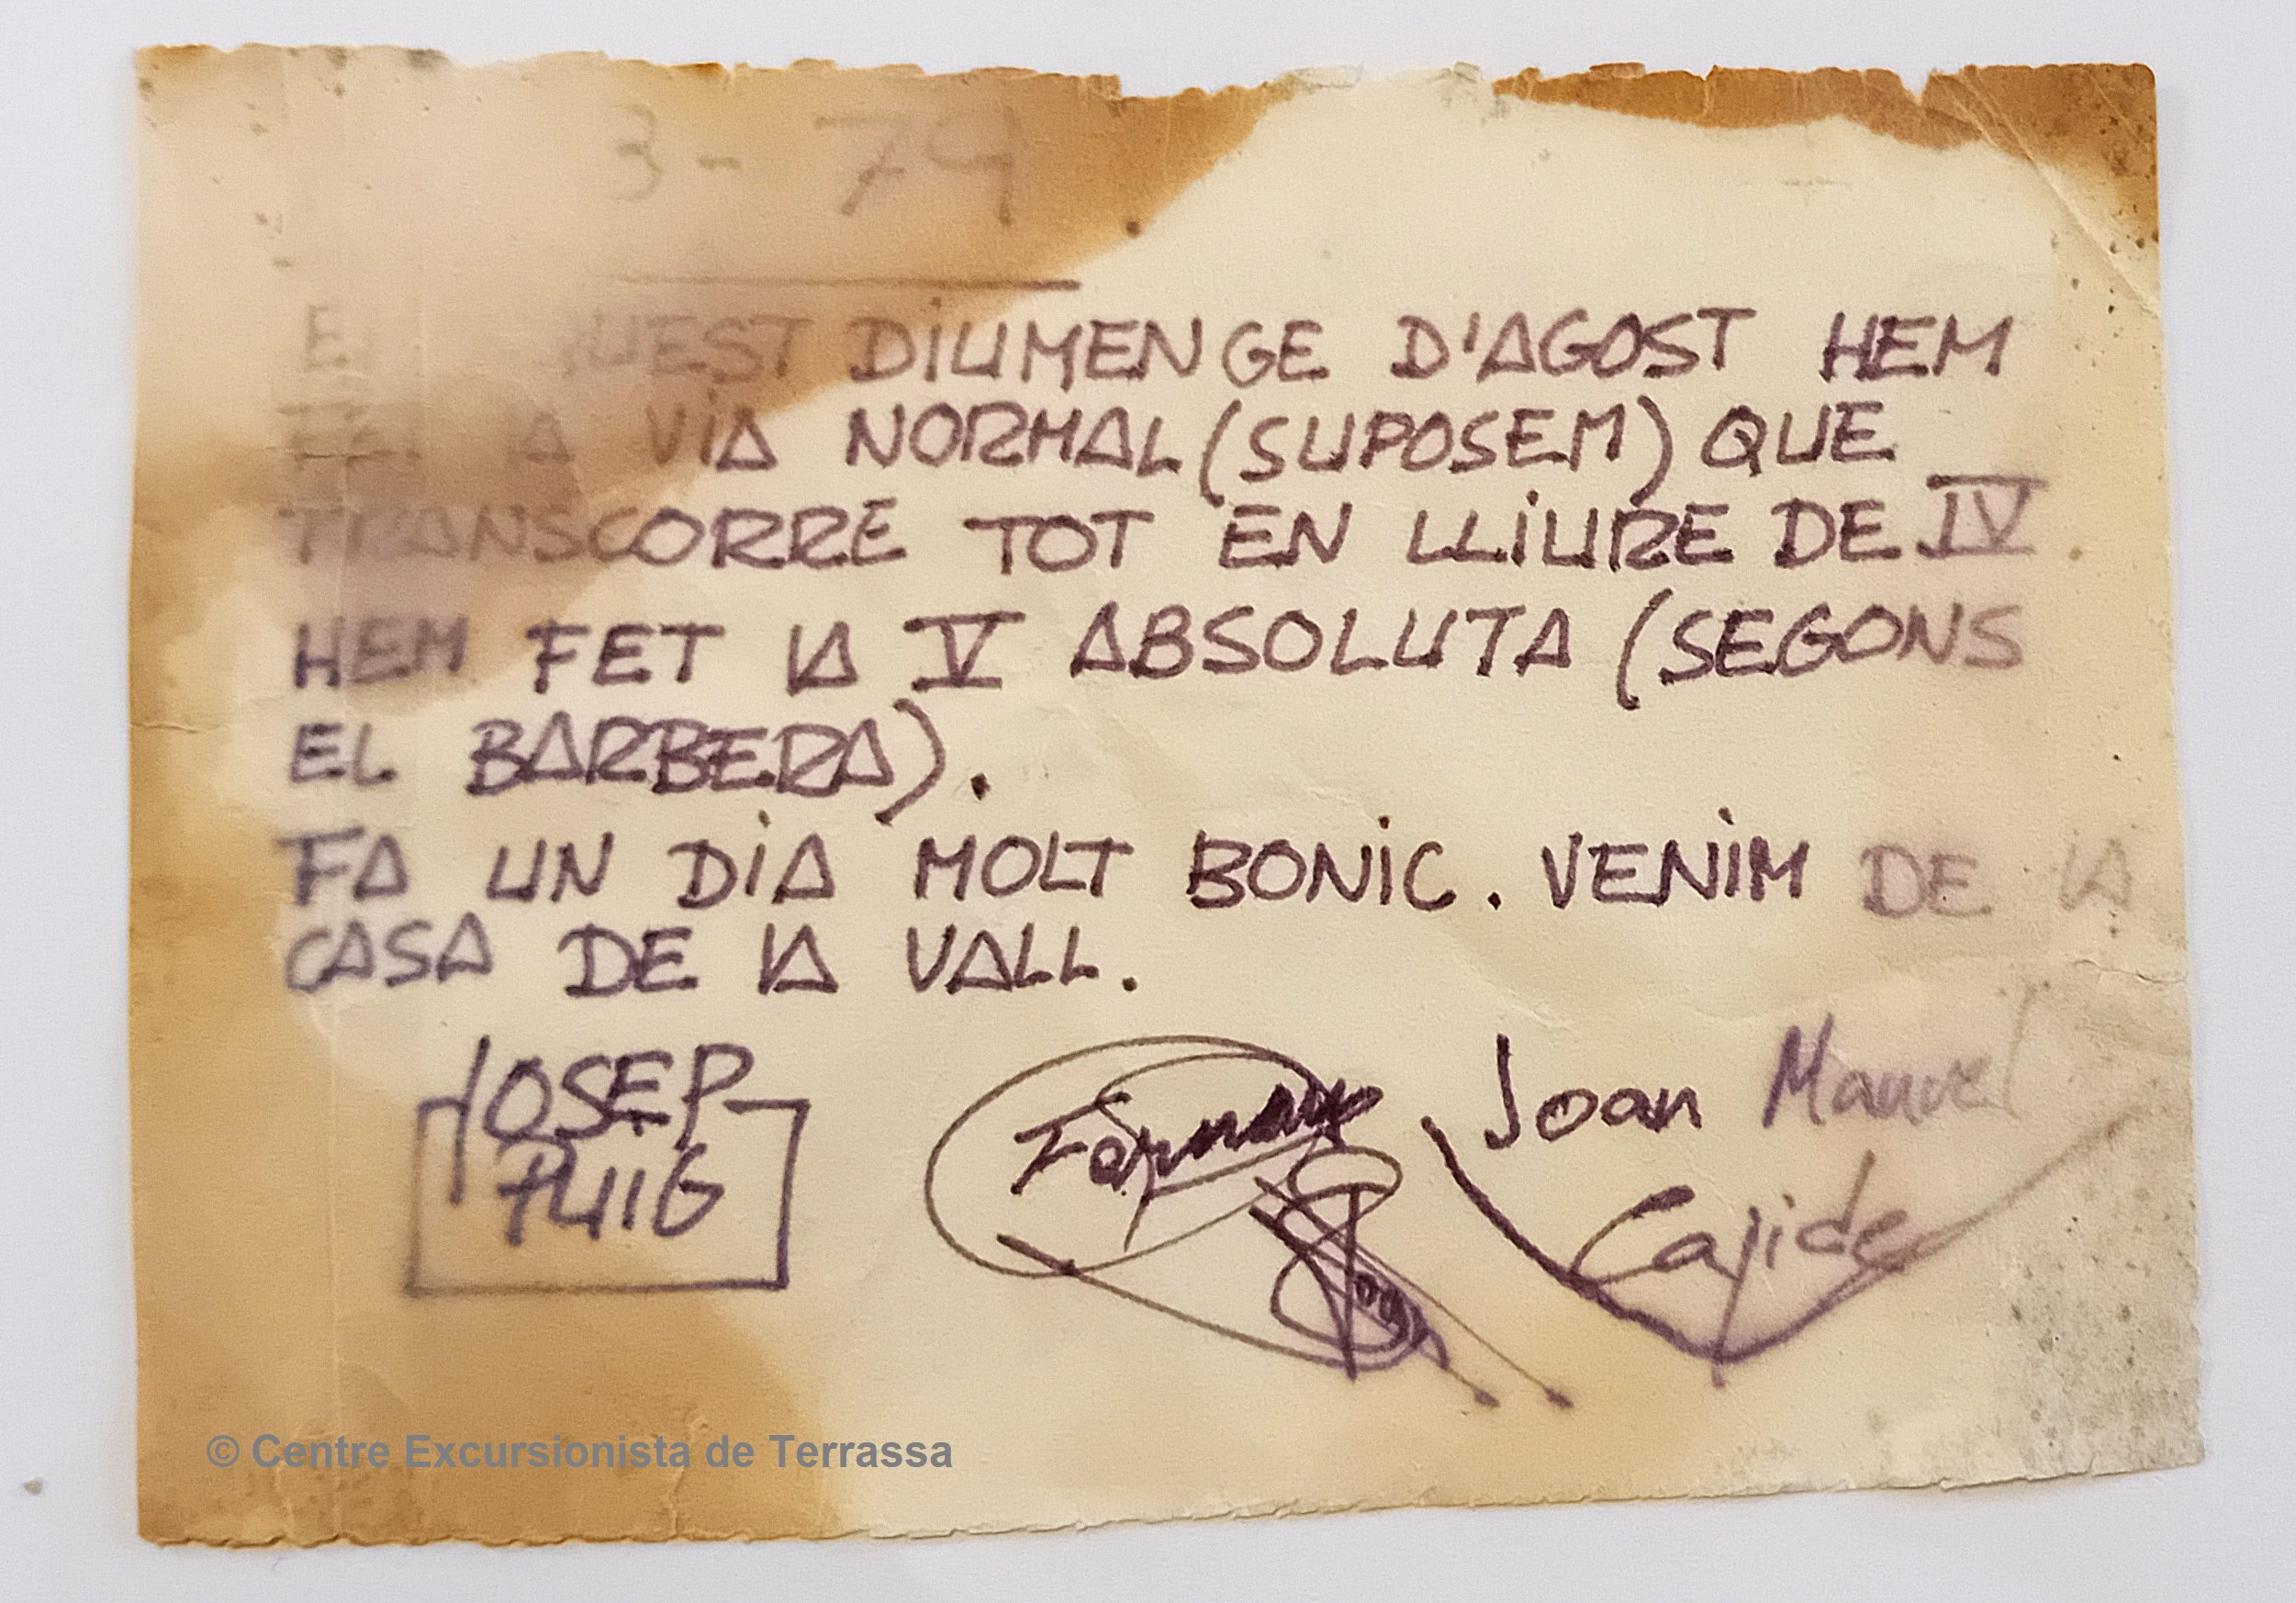 3 - 79
DIUMENGE D'AGOST HEM
VIA NORMAL (SUPOSEM) QUE
TRANSCORRE TOT EN LLIURE DE IV.
HEM FET LA V ABSOLUTA (SEGONS
EL BARBERA).
FA UN DIA MOLT BONIC. VENIM DE LA
CASA DE LA VALL.
JOSEP
PUIG
Joan Manuel
Cajide
© Centre Excursionista de Terrassa